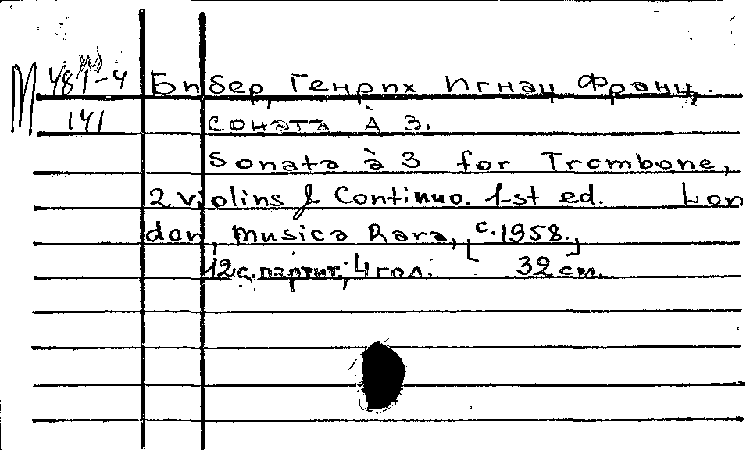 М 481-4 Бибер, Генрих Игнац Франц.
141 Соната À 3.
Sonata à 3 for Trombone,
2 violins & Continuo. 1-st ed. Lon
don, Musica Rara, [c.1958.]
12 с. партит; 4 гол. 32 см.